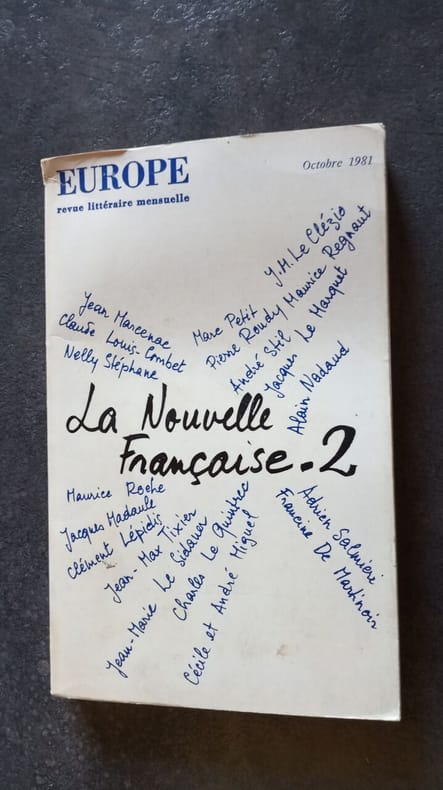 EUROPE
Octobre 1981
revue littéraire mensuelle
J.M. Le Clézio
Maurice Regnaut
Marc Petit
Pierre Roudy
Jean Marcenac
Claude Louis-Combet
Nelly Stéphane
André Stil
Jacques Le Marquet
Alain Nadaud
La Nouvelle
Française.2
Maurice Roche
Jacques Madaule
Clément Lépidis
Jean-Max Tixier
Jean-Marie Le Sidaner
Charles Le Quintrec
Cécile et André Miguel
Adrien Salmieri
Francine De Martinoir